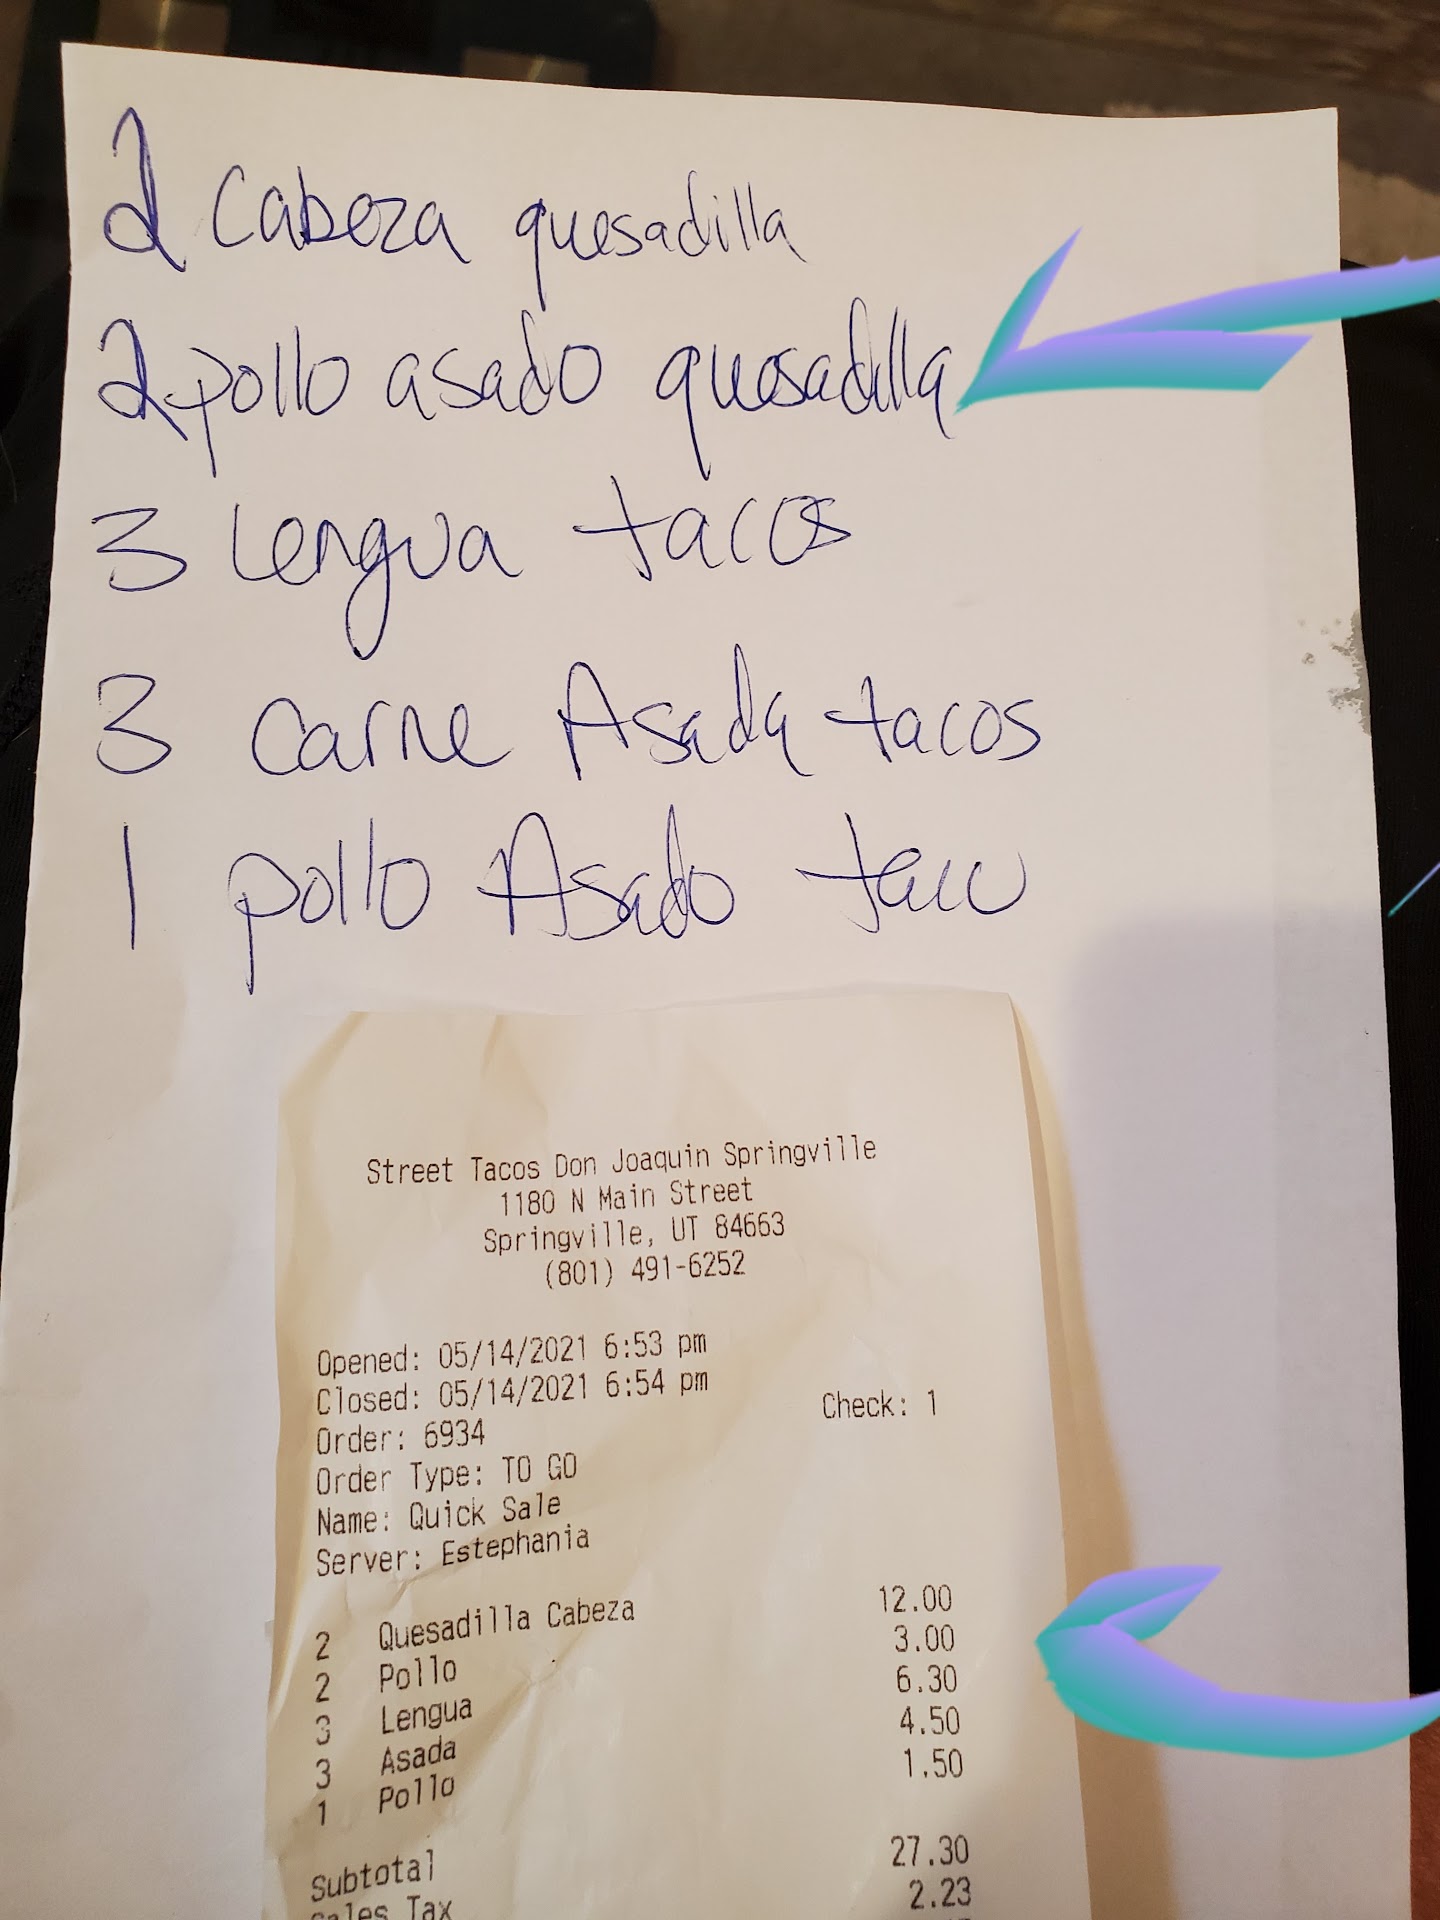 2 Cabeza quesadilla
2 pollo asado quesadilla
3 Lengua tacos
3 Carne Asada tacos
1 pollo Asado taco
Street Tacos Don Joaquin Springville
1180 N Main Street
Springville, UT 84663
(801) 491-6252
Opened: 05/14/2021 6:53 pm
Closed: 05/14/2021 6:54 pm
Check: 1
Order: 6934
Order Type: TO GO
Name: Quick Sale
Server: Estephania
2 Quesadilla Cabeza 12.00
2 Pollo 3.00
3 Lengua 6.30
3 Asada 4.50
1 Pollo 1.50
Subtotal 27.30
Sales Tax 2.23